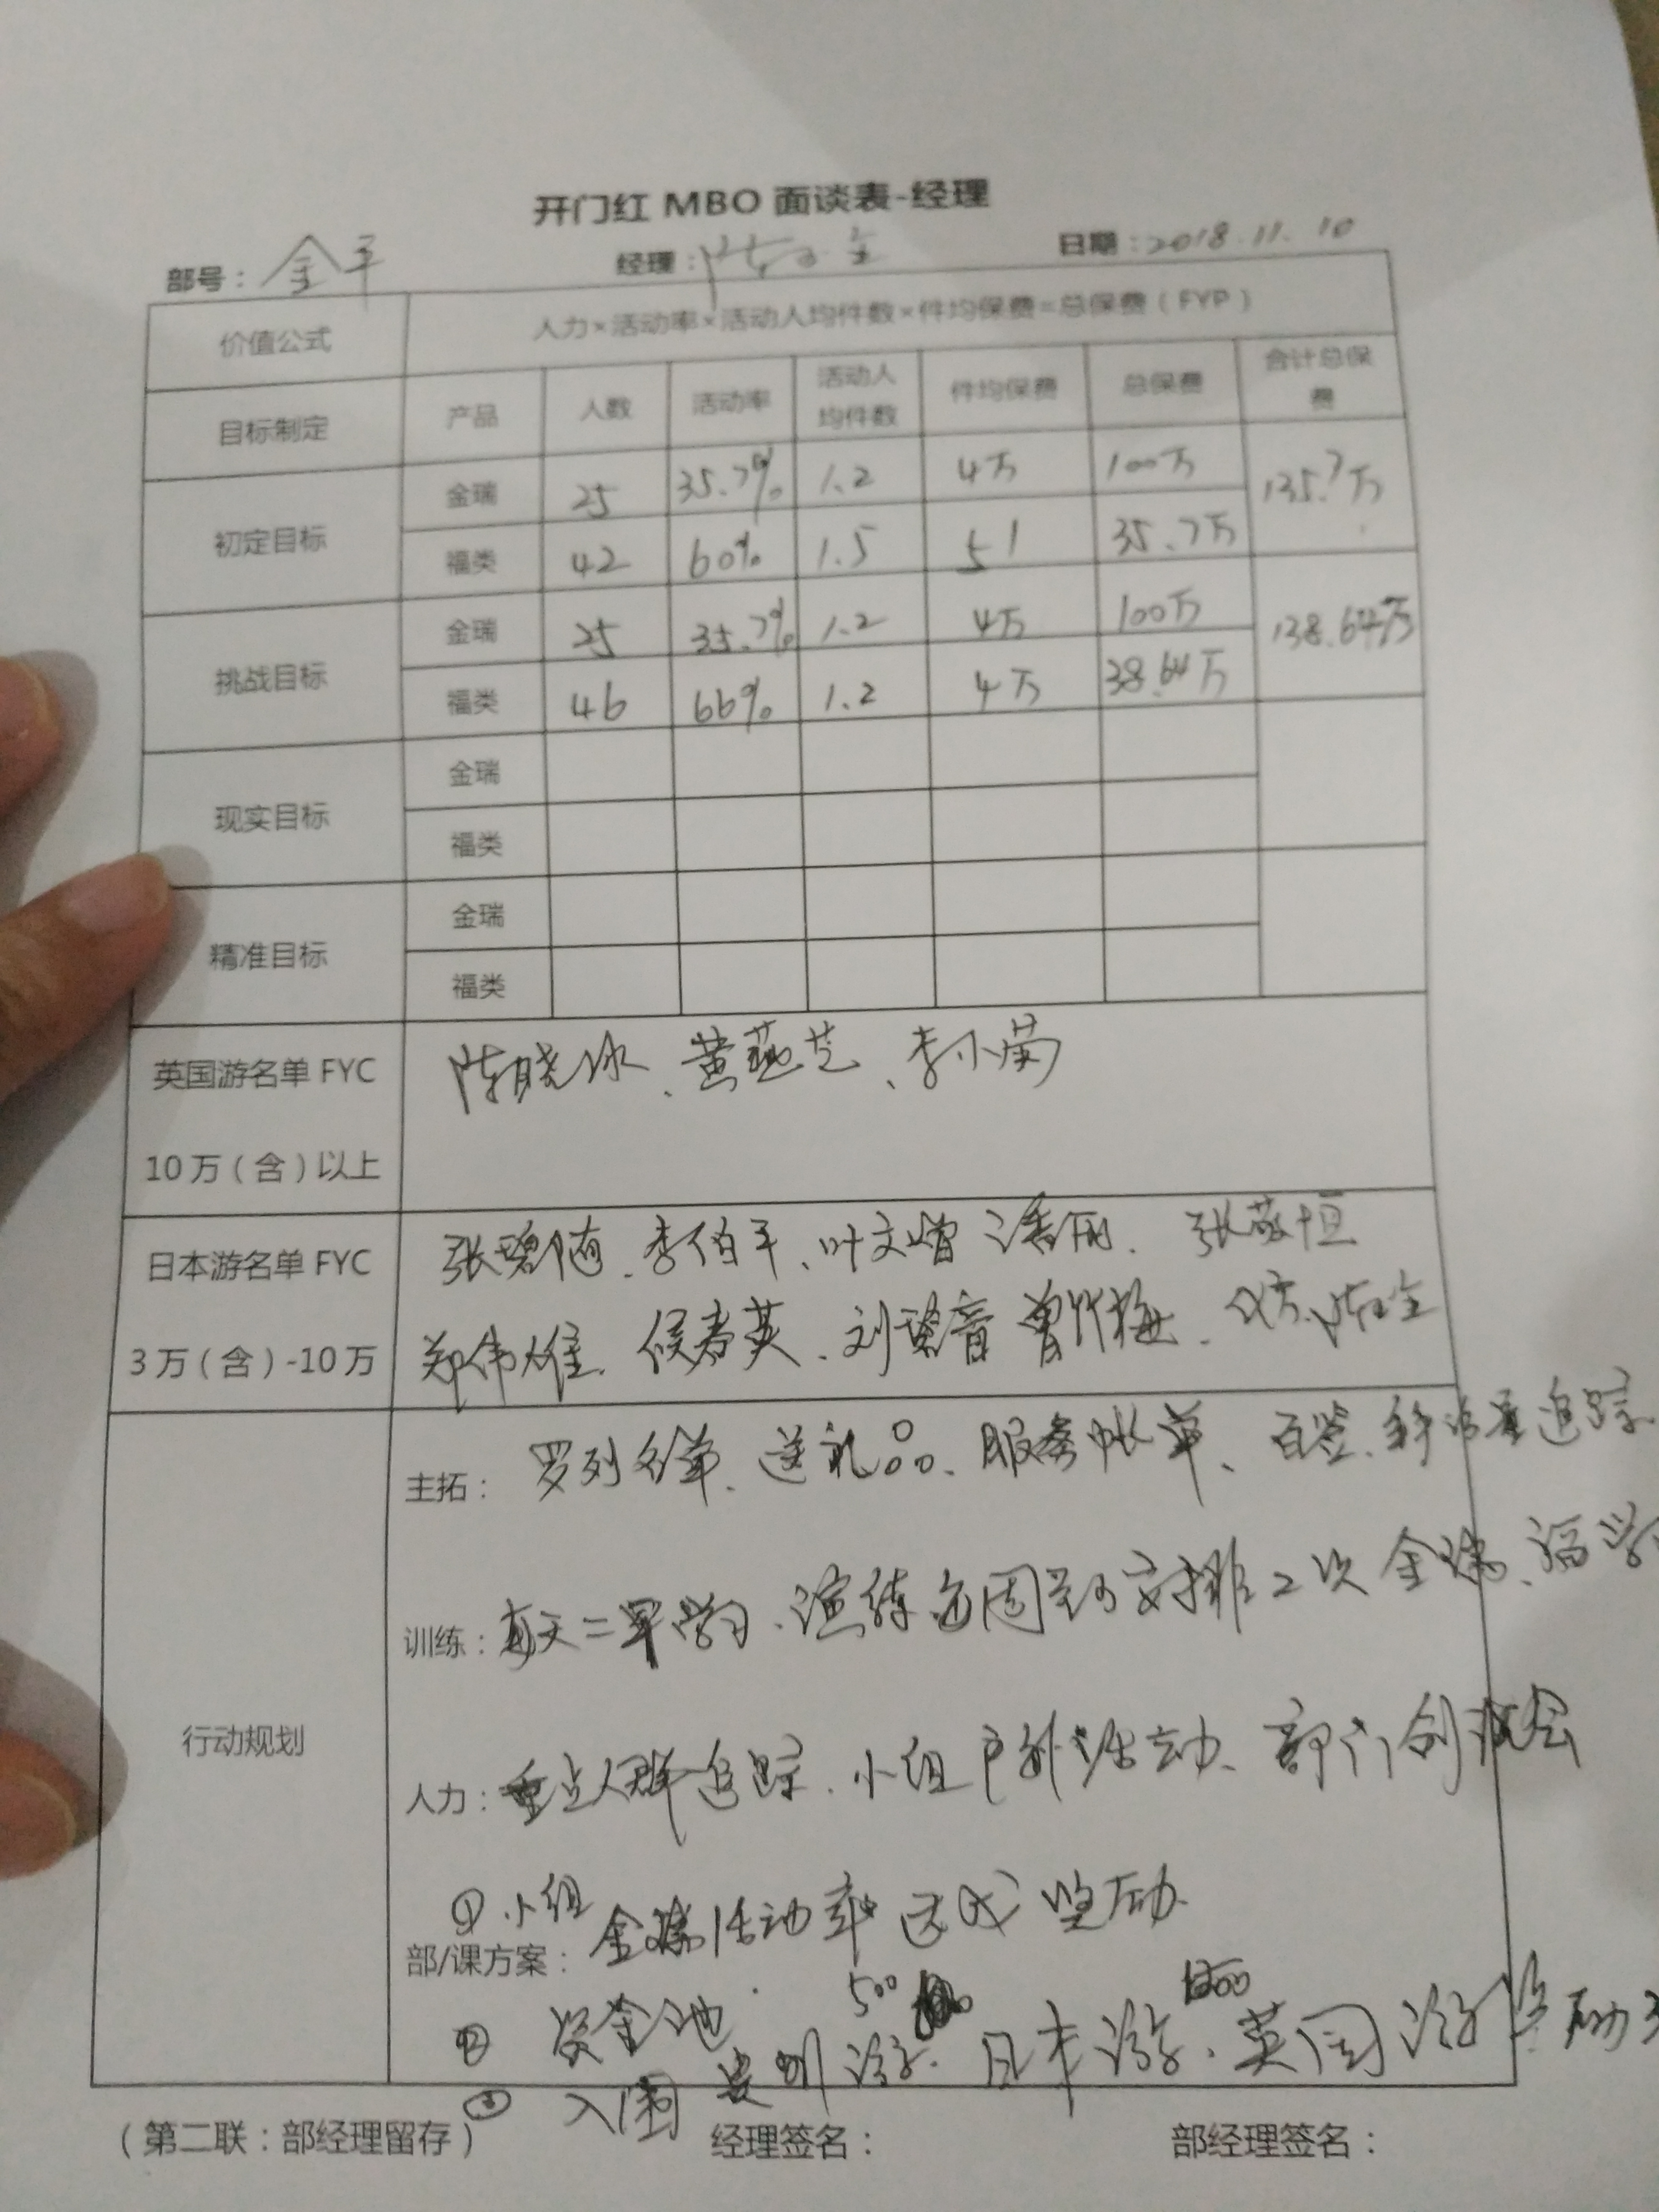 开门红 MBO 面谈表-经理
部号：金平 经理： 日期：2018.11.10
价值公式 人力×活动率×活动人均件数×件均保费=总保费（FYP）
目标制定 产品 人数 活动率 活动人均件数 件均保费 总保费 合计总保费
初定目标 金瑞 25 35.7% 1.2 4万 100万 135.7万
福类 42 60% 1.5 51 35.7万
挑战目标 金瑞 25 35.7% 1.2 4万 100万 138.64万
福类 46 66% 1.2 4万 38.64万
现实目标 金瑞
福类
精准目标 金瑞
福类
英国游名单 FYC 陈晓冰、黄燕芝、李小菊
10万（含）以上
日本游名单 FYC 李伯平、叶文 张敬恒
3万（含）-10万 郑伟雄、侯春英、刘碧音 曾竹梅、
行动规划
主拓：罗列名单、送礼品、服务帐单、 追踪
训练：每天二早学习、演练每周 安排2次金瑞、福
人力：重点人群追踪、小组户外活动、部门创说会
①小组
部/课方案：金瑞活动率达成奖励
500
② 资金池
③ 入围贵州游、日本游、英国游奖励
（第二联：部经理留存） 经理签名： 部经理签名：